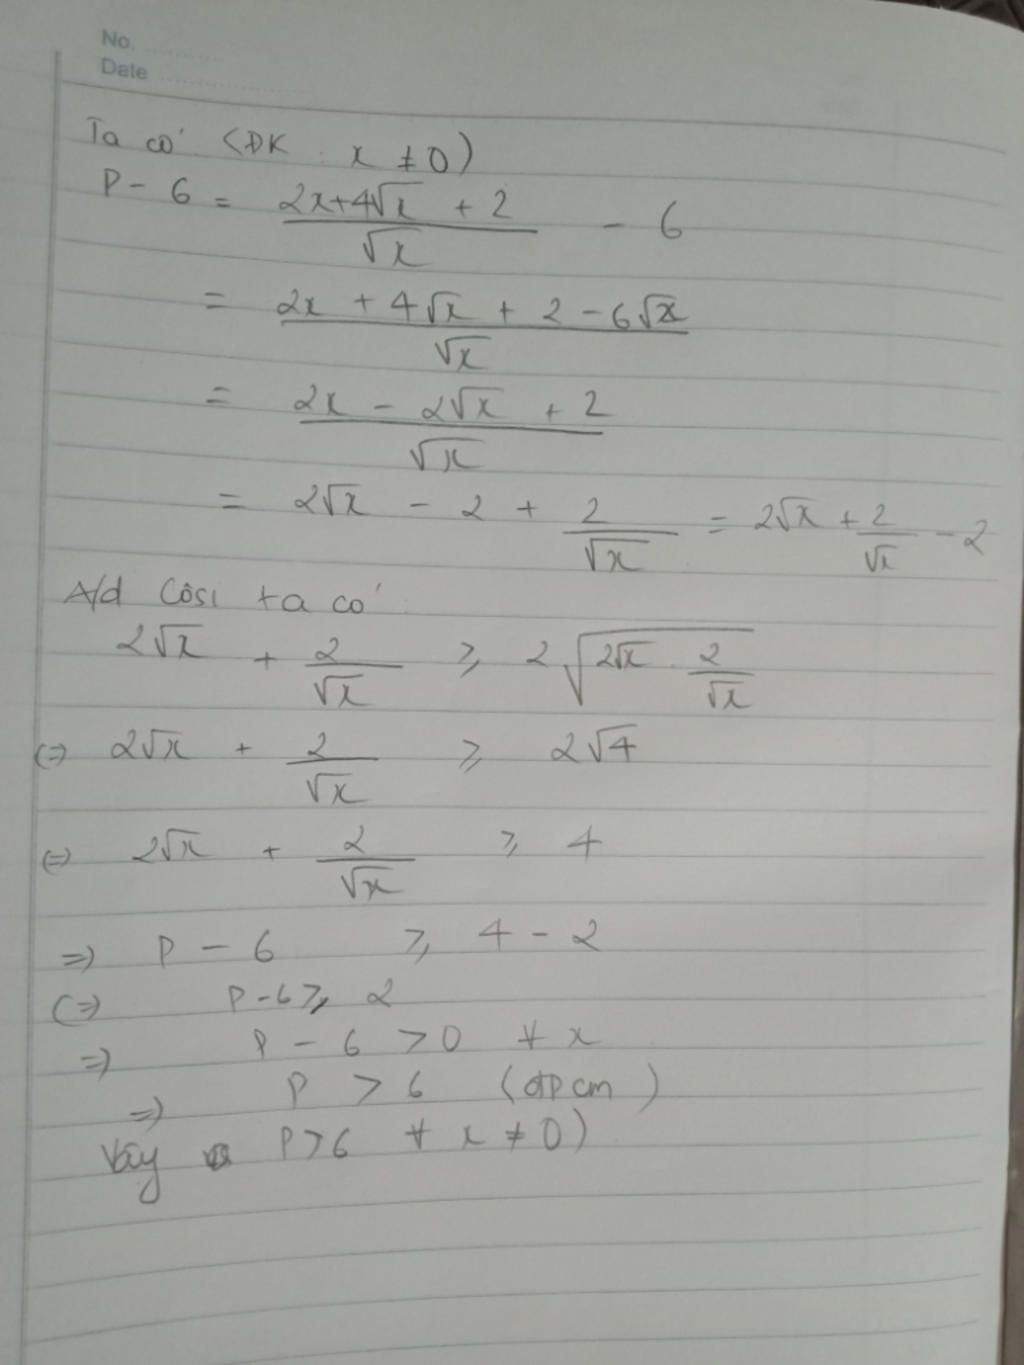 No.
Date
Ta có (ĐK : x ≠ 0)
P - 6 = (2x+4√x + 2)/√x - 6
= (2x + 4√x + 2 - 6√x)/√x
= (2x - 2√x + 2)/√x
= 2√x - 2 + 2/√x = 2√x + 2/√x - 2
A/d Côsi ta có
2√x + 2/√x ≥ 2√(2√x . 2/√x)
(=) 2√x + 2/√x ≥ 2√4
(=) 2√x + 2/√x ≥ 4
=) P - 6 ≥ 4 - 2
(=) P - 6 ≥ 2
=) P - 6 > 0 ∀ x
=) P > 6 (đpcm)
Vậy P > 6 ∀ x ≠ 0)